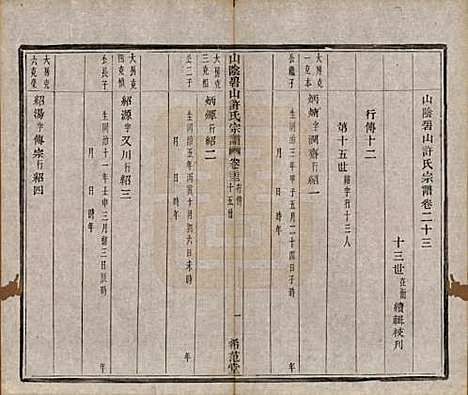 山陰碧山許氏宗譜卷二十三
十三世在衡續輯校刊
行傳十二
第十五世紹字行十三人
大房克一克本
公繼子
炳炳字潤齋行紹一
生同治三年甲子五月二十四日子時
年 月 日 時
山陰碧山許氏宗譜
卷二十三行傳
十五世
一
希范堂
大房克三克相
公二子
炳輝行紹二
生同治五年丙寅十月初六日未時
年 月 日 時
大房克四克楨
公長子
紹源字又川行紹三
生同治十一年壬申三月初三日辰時
年 月 日 時
大房克六克榮
紹湯字傳宗行紹四